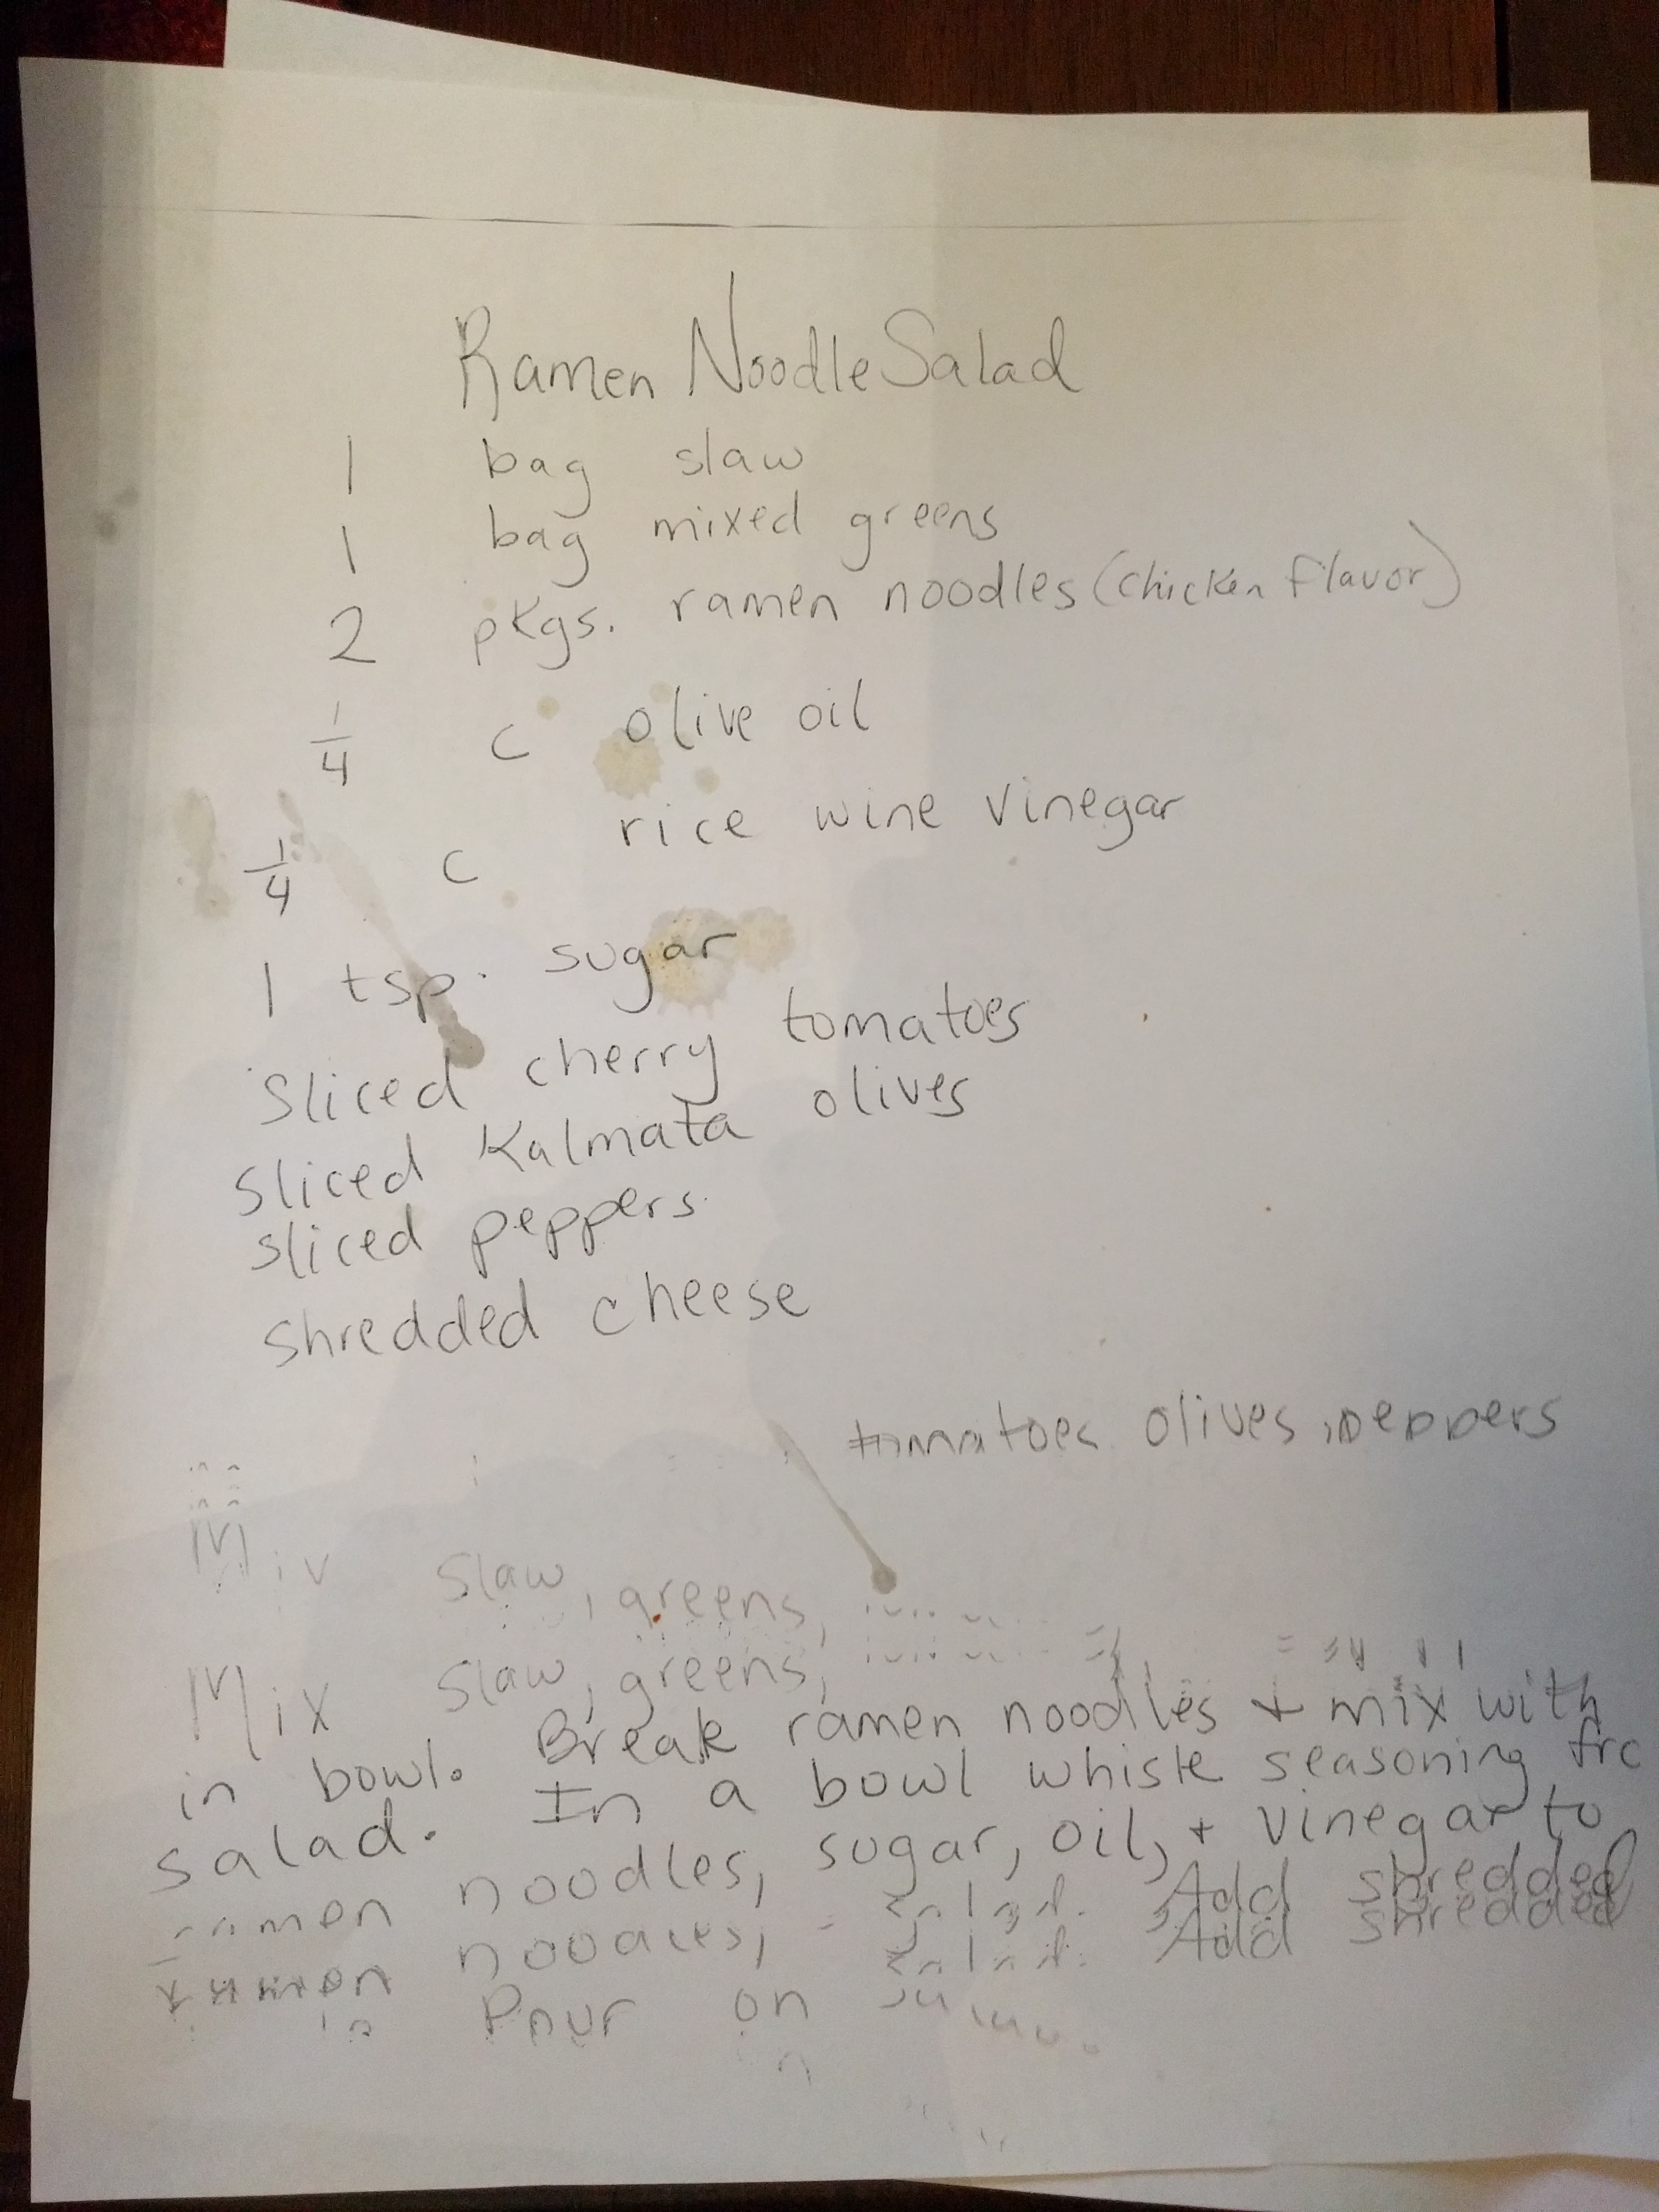 Ramen Noodle Salad
1 bag slaw
1 bag mixed greens
2 pkgs. ramen noodles (chicken flavor)
1/4 c olive oil
1/4 c rice wine vinegar
1 tsp. sugar
Sliced cherry tomatoes
Sliced Kalmata olives
sliced peppers
Shredded cheese
tomatoes olives, peppers
slaw, greens,
Mix slaw, greens,
in bowl. Break ramen noodles + mix with
salad. In a bowl whisk seasoning
ramen noodles, sugar, oil, + vinegar to
Add shredded
Add shredded
Pour on